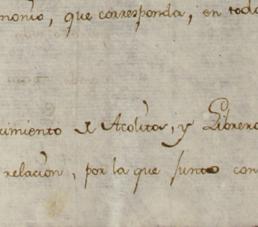 monio, que corresponda, en todo
cimiento de Acolitos, y Librero
relacion, por la que junto con